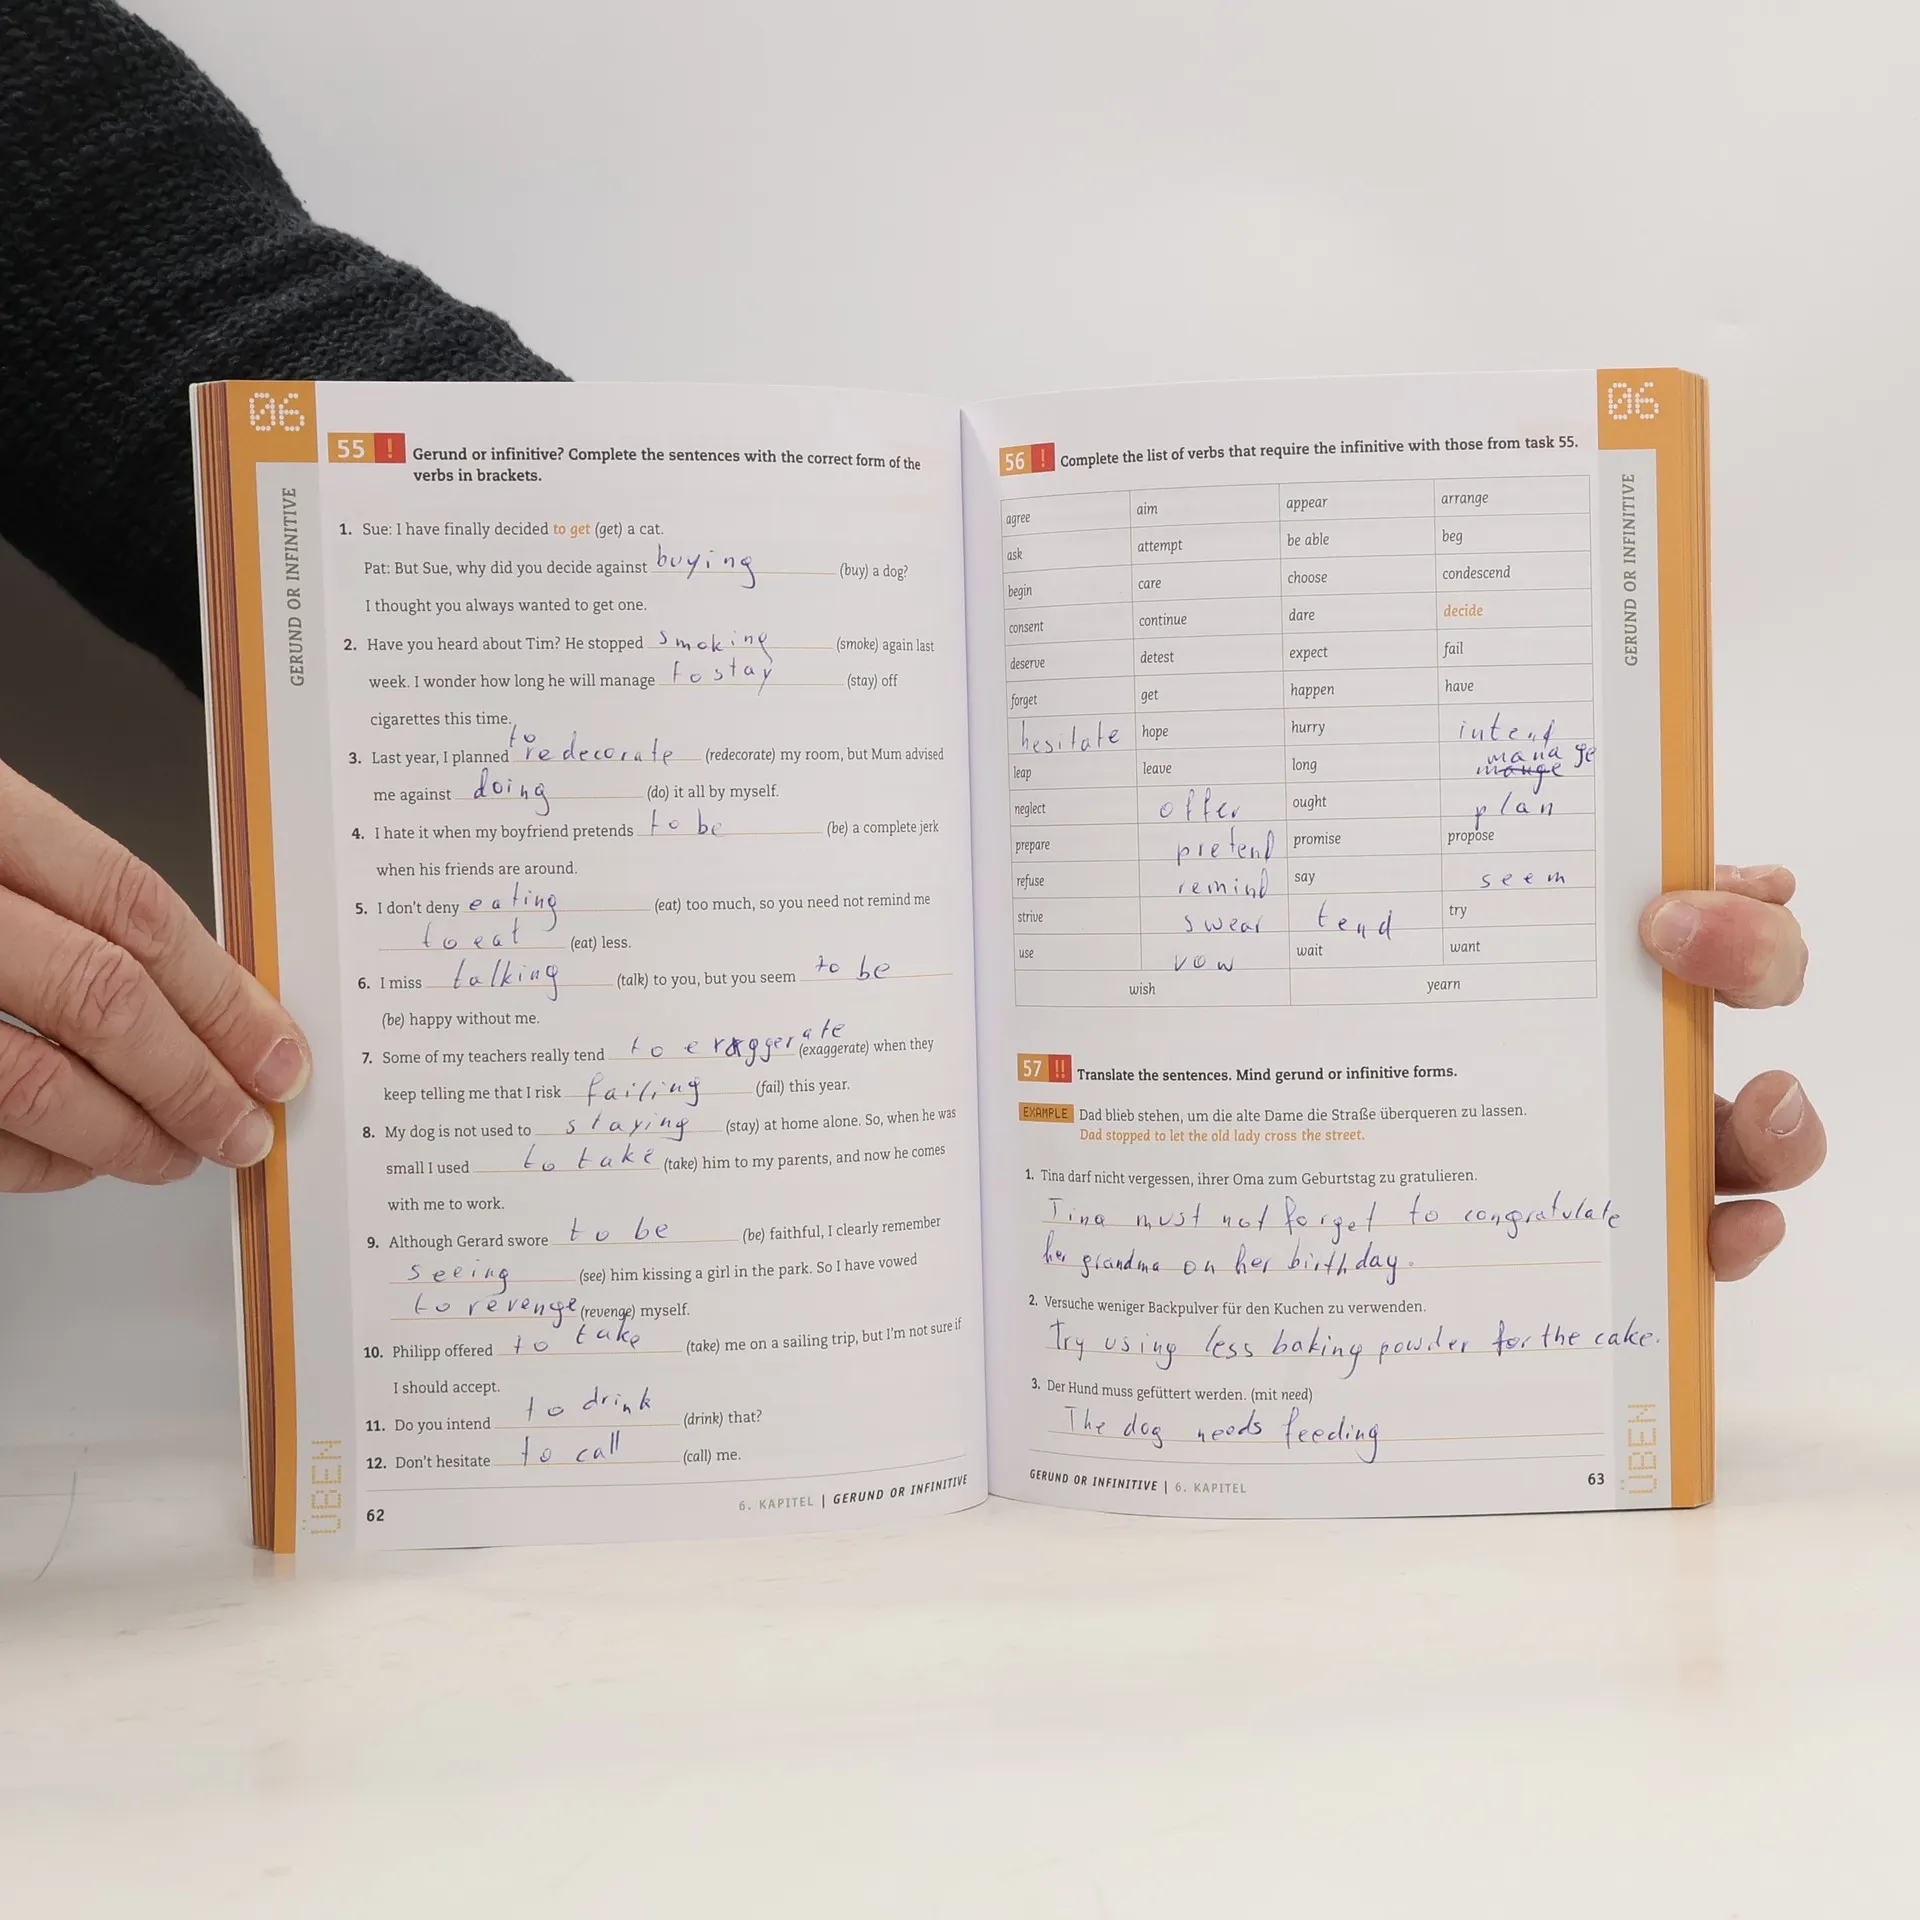 06
GERUND OR INFINITIVE
55 ! Gerund or infinitive? Complete the sentences with the correct form of the
verbs in brackets.
1. Sue: I have finally decided to get (get) a cat.
Pat: But Sue, why did you decide against buying (buy) a dog?
I thought you always wanted to get one.
2. Have you heard about Tim? He stopped smoking (smoke) again last
week. I wonder how long he will manage to stay (stay) off
cigarettes this time.
3. Last year, I planned to redecorate (redecorate) my room, but Mum advised
me against doing (do) it all by myself.
4. I hate it when my boyfriend pretends to be (be) a complete jerk
when his friends are around.
5. I don't deny eating (eat) too much, so you need not remind me
to eat (eat) less.
6. I miss talking (talk) to you, but you seem to be
(be) happy without me.
7. Some of my teachers really tend to (exaggerate) when they
keep telling me that I risk failing (fail) this year.
8. My dog is not used to staying (stay) at home alone. So, when he was
small I used to take (take) him to my parents, and now he comes
with me to work.
9. Although Gerard swore to be (be) faithful, I clearly remember
seeing (see) him kissing a girl in the park. So I have vowed
to revenge (revenge) myself.
10. Philipp offered to take (take) me on a sailing trip, but I'm not sure if
I should accept.
11. Do you intend to drink (drink) that?
12. Don't hesitate to call (call) me.
ÜBEN
62
6. KAPITEL | GERUND OR INFINITIVE
06
GERUND OR INFINITIVE
56 ! Complete the list of verbs that require the infinitive with those from task 55.
agree aim appear arrange
ask attempt be able beg
begin care choose condescend
consent continue dare decide
deserve detest expect fail
forget get happen have
hesitate hope hurry intend
leap leave long manage
neglect offer ought plan
prepare pretend promise propose
refuse remind say seem
strive swear tend try
use vow wait want
wish yearn
57 !! Translate the sentences. Mind gerund or infinitive forms.
EXAMPLE Dad blieb stehen, um die alte Dame die Straße überqueren zu lassen.
Dad stopped to let the old lady cross the street.
1. Tina darf nicht vergessen, ihrer Oma zum Geburtstag zu gratulieren.
Tina must not forget to congratulate
her grandma on her birthday.
2. Versuche weniger Backpulver für den Kuchen zu verwenden.
Try using less baking powder for the cake.
3. Der Hund muss gefüttert werden. (mit need)
The dog needs feeding
GERUND OR INFINITIVE | 6. KAPITEL
63
ÜBEN